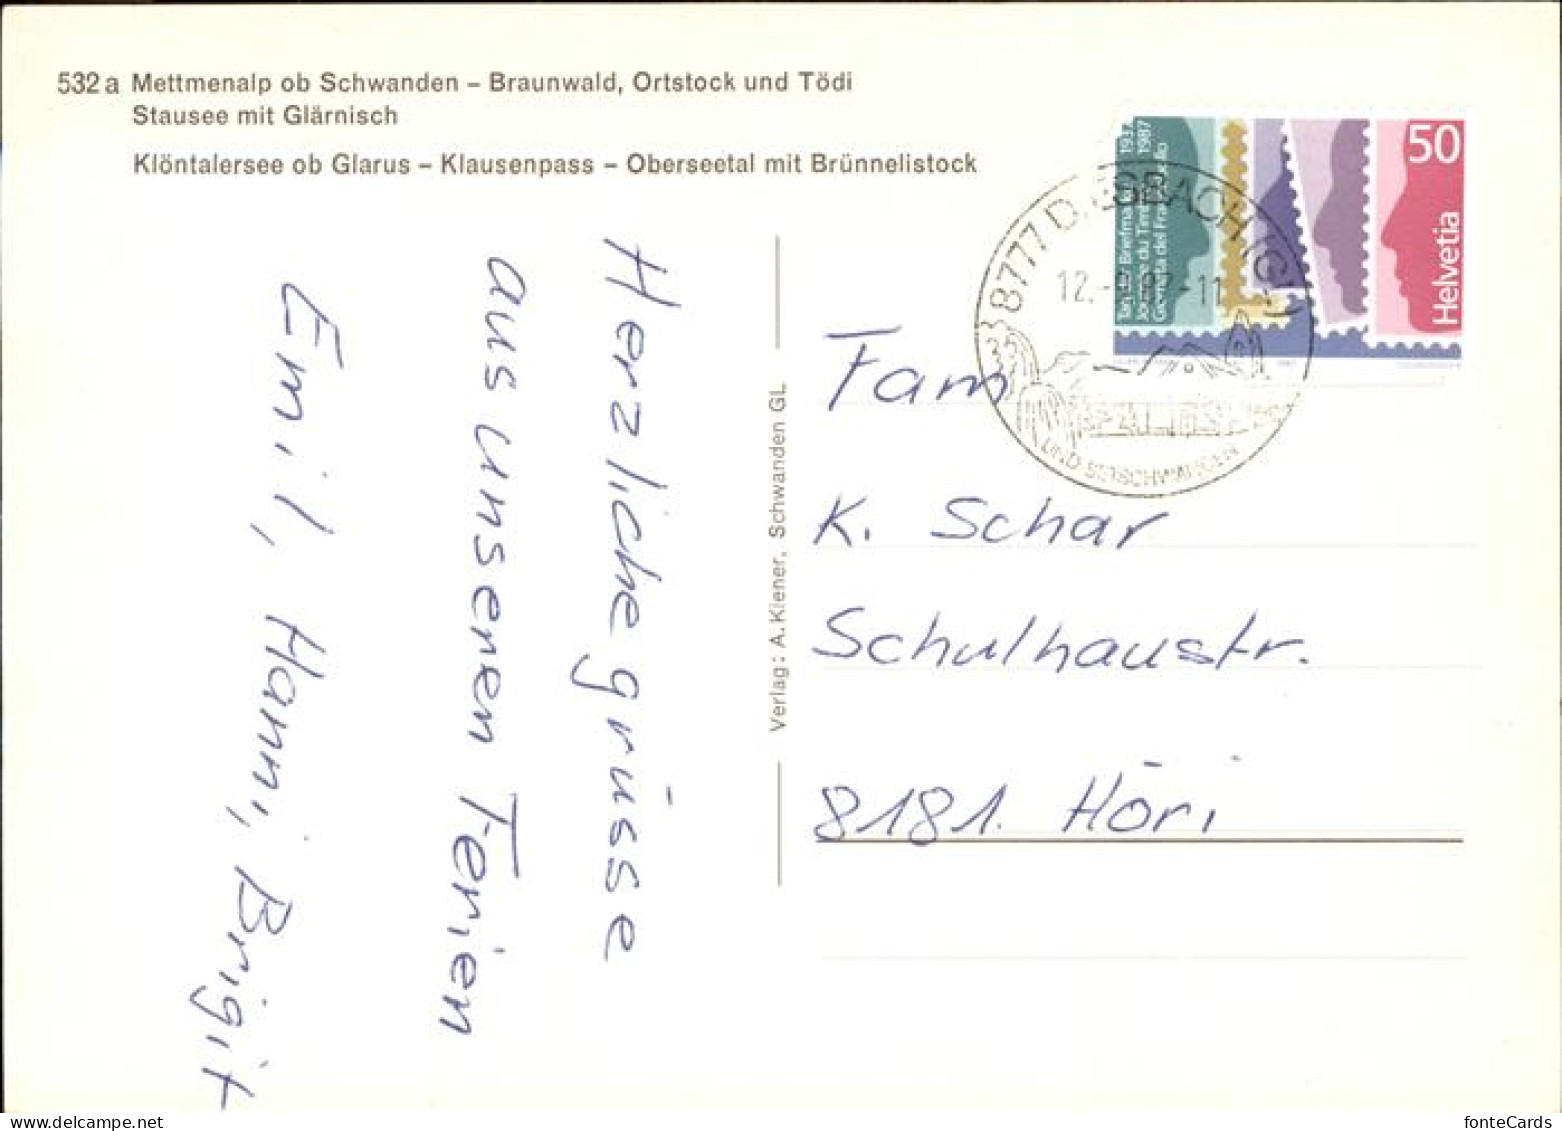 532 a Mettmenalp ob Schwanden – Braunwald, Ortstock und Tödi
Stausee mit Glärnisch
Klöntalersee ob Glarus – Klausenpass – Oberseetal mit Brünnelistock
Herzliche grüsse
aus unseren Ferien
Emil, Hanni, Brigit
Verlag: A. Kiener, Schwanden GL
50
Helvetia
Tag der Briefmarke 1937
Journée du Timbre 1987
8777 DIESBACH (GL)
UND BETSCHWANDEN
Fam
K. Schär
Schulhaustr.
8181. Höri
fonteCards